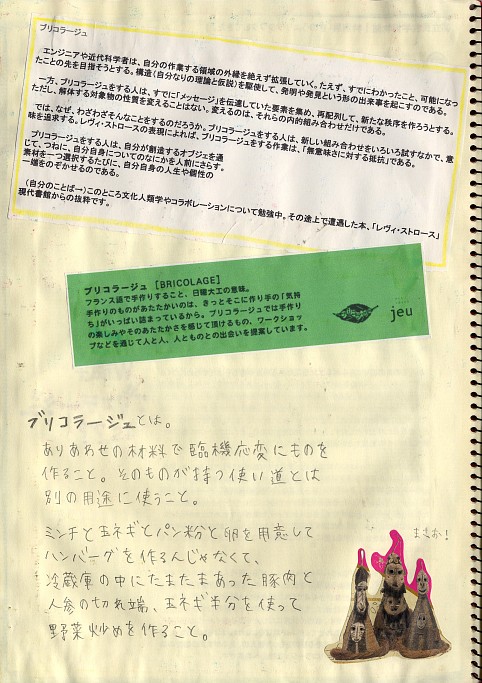 ブリコラージュ
エンジニアや近代科学者は、自分の作業する領域の外縁を絶えず拡張していく。たえず、すでにわかったこと、可能になっ
たことの先を目指そうとする。構造（自分なりの理論と仮説）を駆使して、発明や発見という形の出来事を起こすのである。
一方、ブリコラージュをする人は、すでに「メッセージ」を伝達していた要素を集め、再配列して、新たな秩序を作ろうとする。
ただし、解体する対象物の性質を変えることはない。変えるのは、それらの内的組み合わせだけである。
では、なぜ、わざわざそんなことをするのだろうか。ブリコラージュをする人は、新しい組み合わせをいろいろ試すなかで、意
味を追求する。レヴィ・ストロースの表現によれば、ブリコラージュをする作業は、「無意味さに対する抵抗」である。
ブリコラージュをする人は、自分が創造するオブジェを通
じて、つねに、自分自身についてのなにかを人前にさらす。
素材を一つ選択するたびに、自分自身の人生や個性の
一端をのぞかせるのである。
（自分のことば→）このところ文化人類学やコラボレーションについて勉強中。その途上で遭遇した本、「レヴィ・ストロース」
現代書館からの抜粋です。
ブリコラージュ [BRICOLAGE]
フランス語で手作りすること、日曜大工の意味。
手作りのものがあたたかいのは、きっとそこに作り手の「気持
ち」がいっぱい詰まっているから。ブリコラージュでは手作り
の楽しみやそのあたたかさを感じて頂けるもの、ワークショッ
プなどを通じて人と人、人とものとの出会いを提案しています。
jeu
ブリコラージュとは。
ありあわせの材料で臨機応変にものを
作ること。そのものが持つ使い道とは
別の用途に使うこと。
ミンチと玉ネギとパン粉と卵を用意して
ハンバーグを作るんじゃなくて、
冷蔵庫の中にたまたまあった豚肉と
人参の切れ端、玉ネギ半分を使って
野菜炒めを作ること。